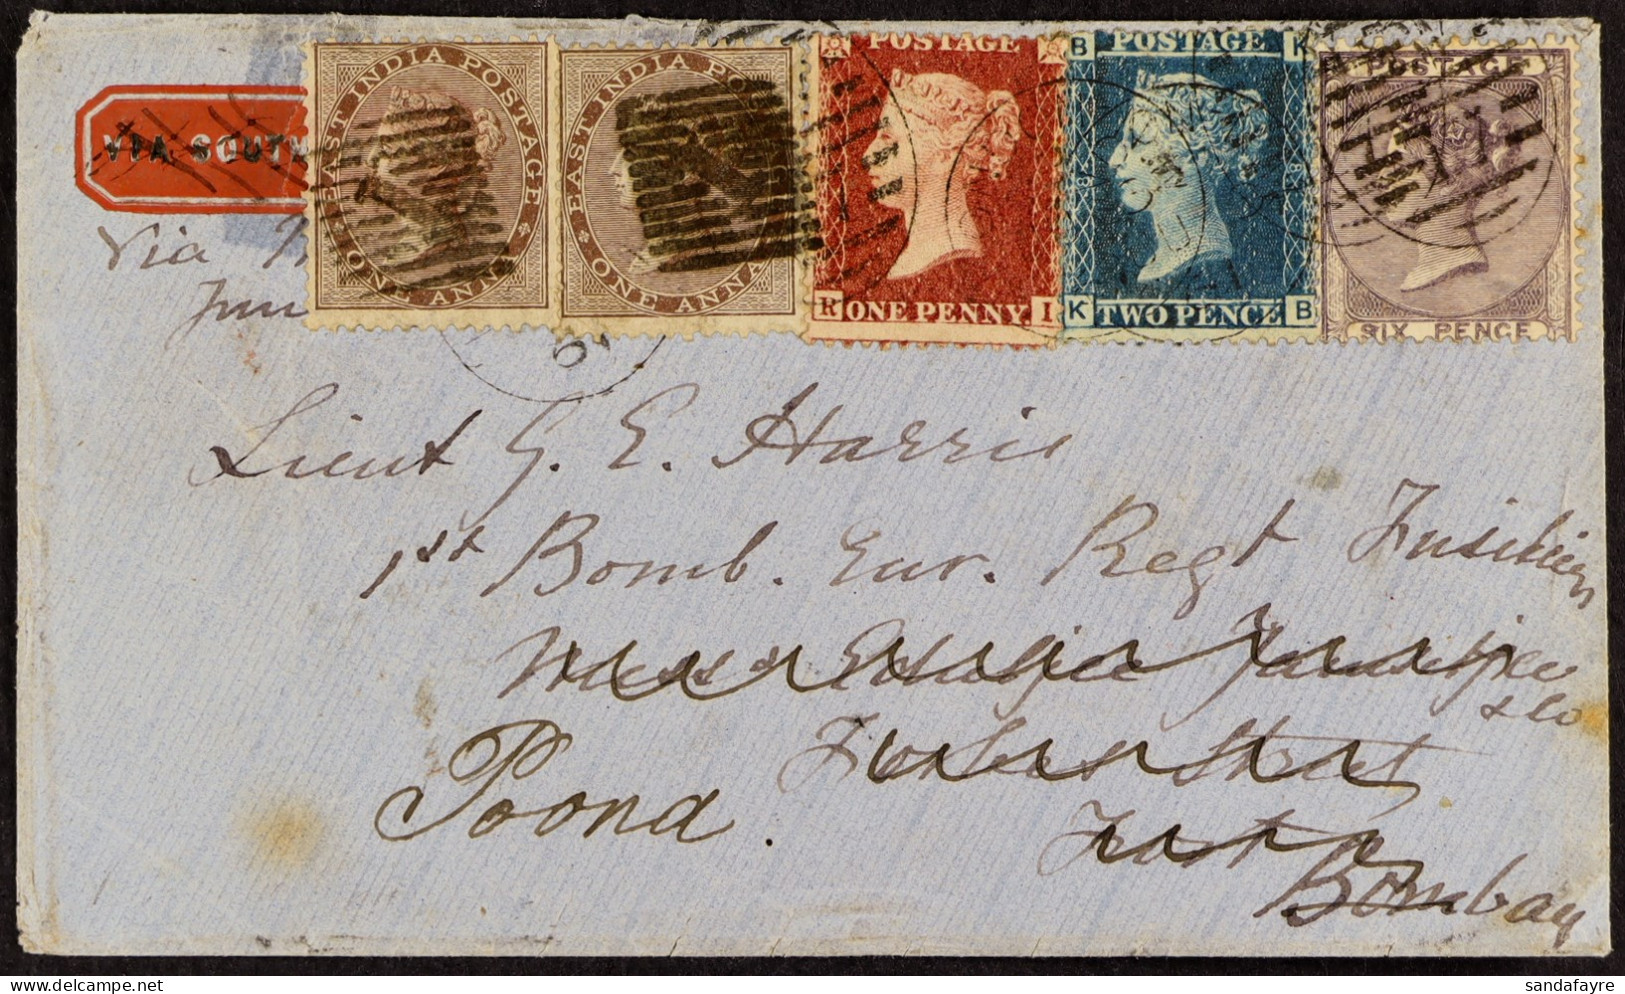 EAST INDIA POSTAGE
ONE ANNA
EAST INDIA PO
ONE ANNA
POSTAGE
R ONE PENNY I
B POSTAGE K
K TWO PENCE B
POSTAGE
SIX PENCE
VIA SOUTH
Via
Lieut G. E. Harris
1st Bomb. Eur. Regt Fusiliers
& Co
Forbes Street
Poona.
Fort
Bombay
sandafayre